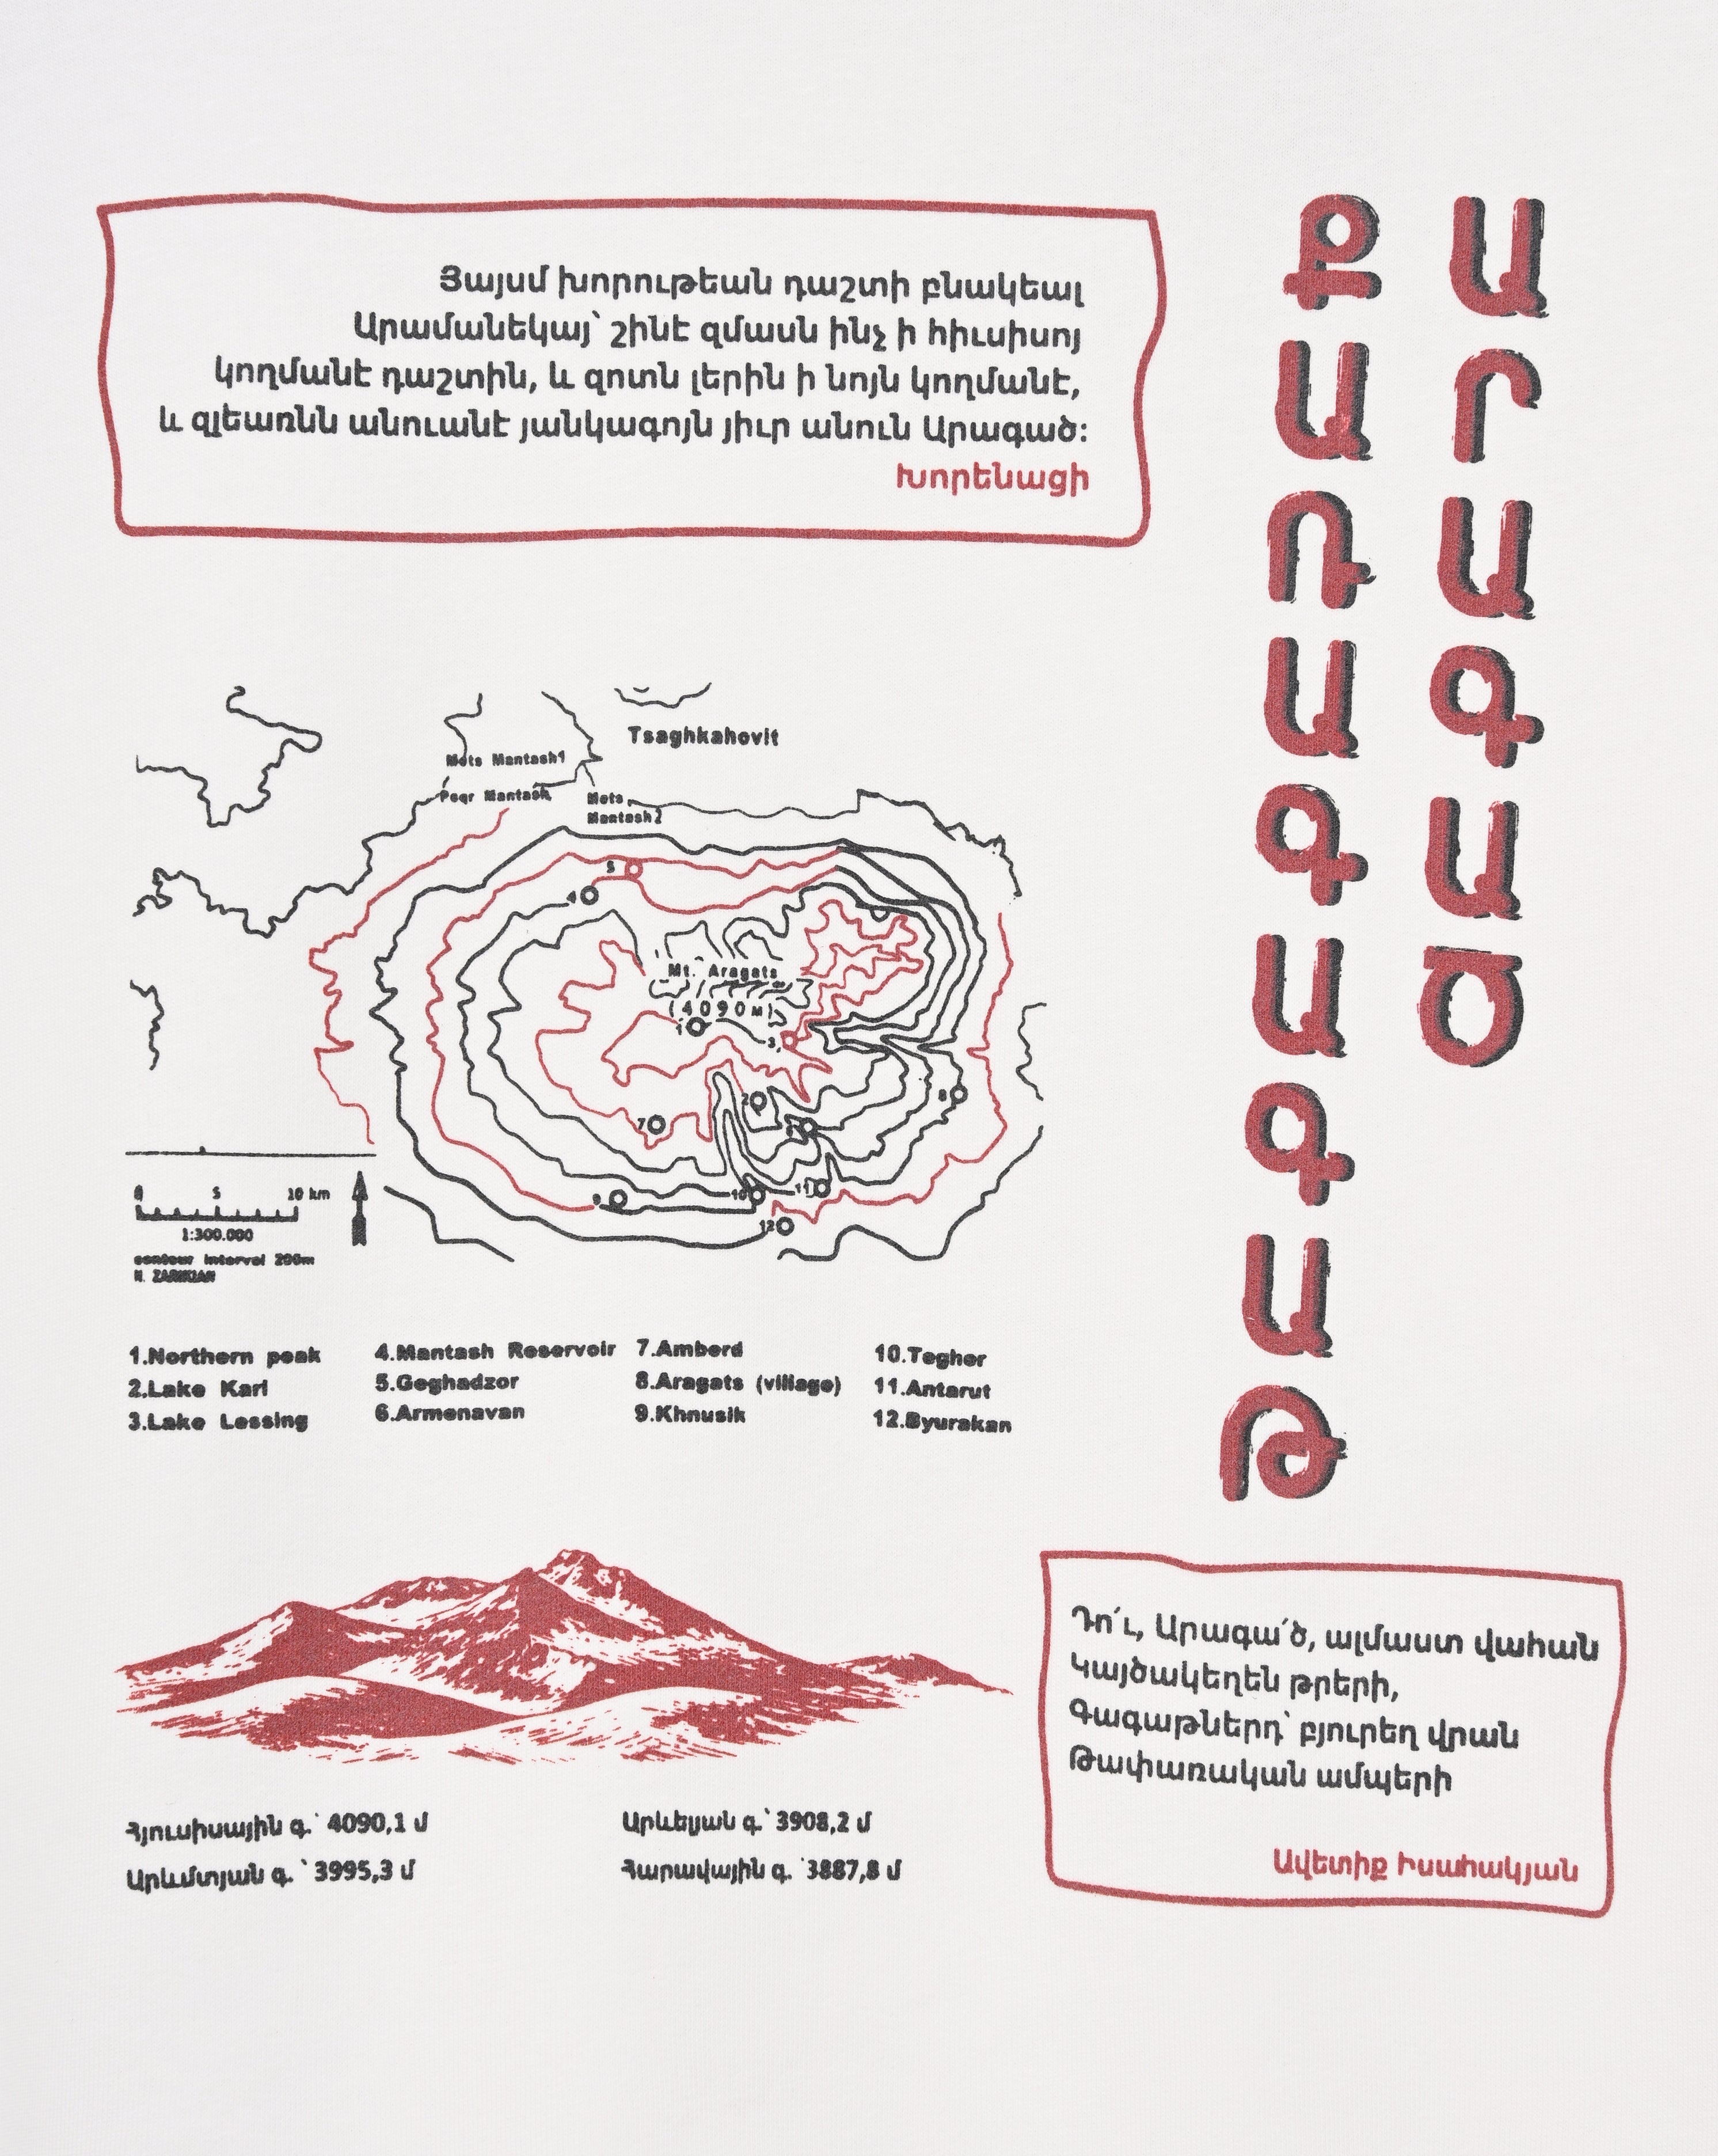 Յայսմ խորութեան դաշտի բնակեալ
Արամանեկայ՝ շինէ զմասն ինչ ի հիւսիսոյ
կողմանէ դաշտին, և զոտն լերին ի նոյն կողմանէ,
և զլեառնն անուանէ յանկագոյն յիւր անուն Արագած։
Խորենացի
ԱՐԱԳԱԾ
ՔԱՌԱԳԱԳԱԹ
Tsaghkahovit
Mets Mantash1
Peqr Mantash
Mets
Mantash2
5
4
Mt. Aragats
(4090м)
1
3
2
8
7
9
10
11
12
0 5 10 km
1:300.000
contour interval 200m
N. ZARIKIAN
1.Northern peak
2.Lake Kari
3.Lake Lessing
4.Mantash Reservoir
5.Geghadzor
6.Armenavan
7.Amberd
8.Aragats (village)
9.Khnusik
10.Tegher
11.Antarut
12.Byurakan
Հյուսիսային գ.՝ 4090,1 մ
Արևմտյան գ.՝ 3995,3 մ
Արևելյան գ.՝ 3908,2 մ
Հարավային գ.՝ 3887,8 մ
Դո՛ւ, Արագա՛ծ, ալմաստ վահան
Կայծակեղեն թրերի,
Գագաթներդ՝ բյուրեղ վրան
Թափառական ամպերի
Ավետիք Իսահակյան